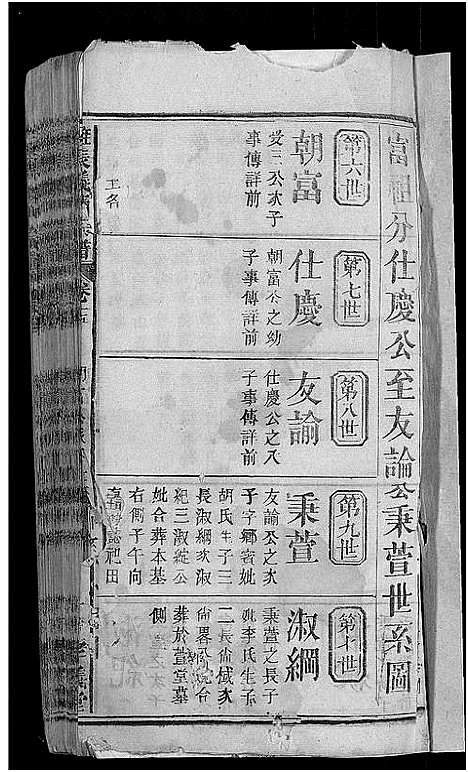 富祖分仕慶公至友諭公秉萱世系圖
第六世
朝富
受三公次子
事傳詳前
第七世
仕慶
朝富公之幼
子事傳詳前
第八世
友諭
仕慶公之次
子事傳詳前
第九世
秉萱
友諭公之次
子字鄉賓妣
胡氏生子三
長淑綱次淑
紀三淑綻公
妣合葬本基
右側子午向
祀田
第十世
淑綱
秉萱之長子
妣李氏生子
二長尚
尚畧公妣合
葬於萱堂墓
側